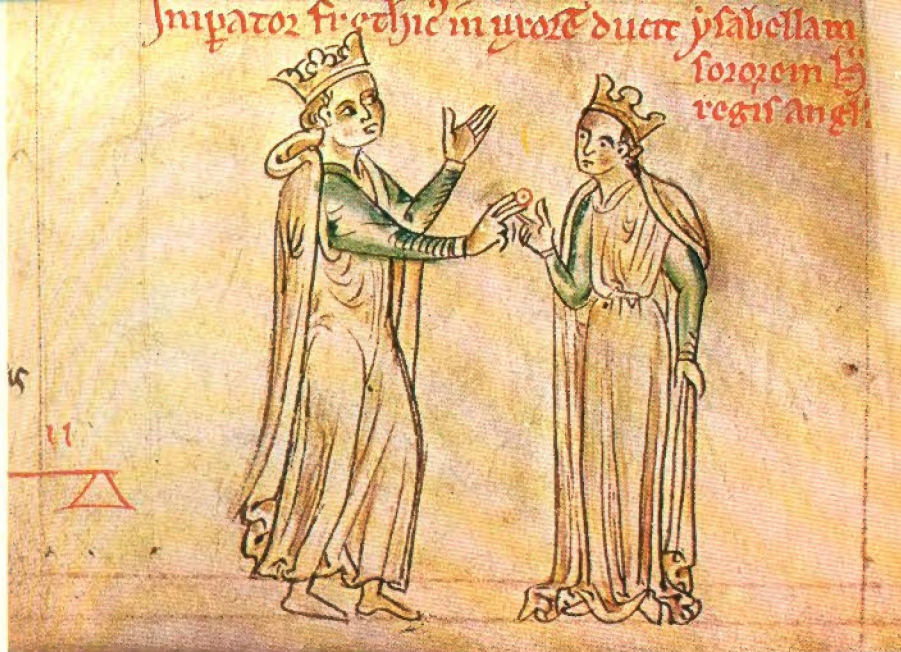 Imp̱ator frethic᷒ in uxorē ducit ysabellam
sororem H̄
regis angl᷒.
11